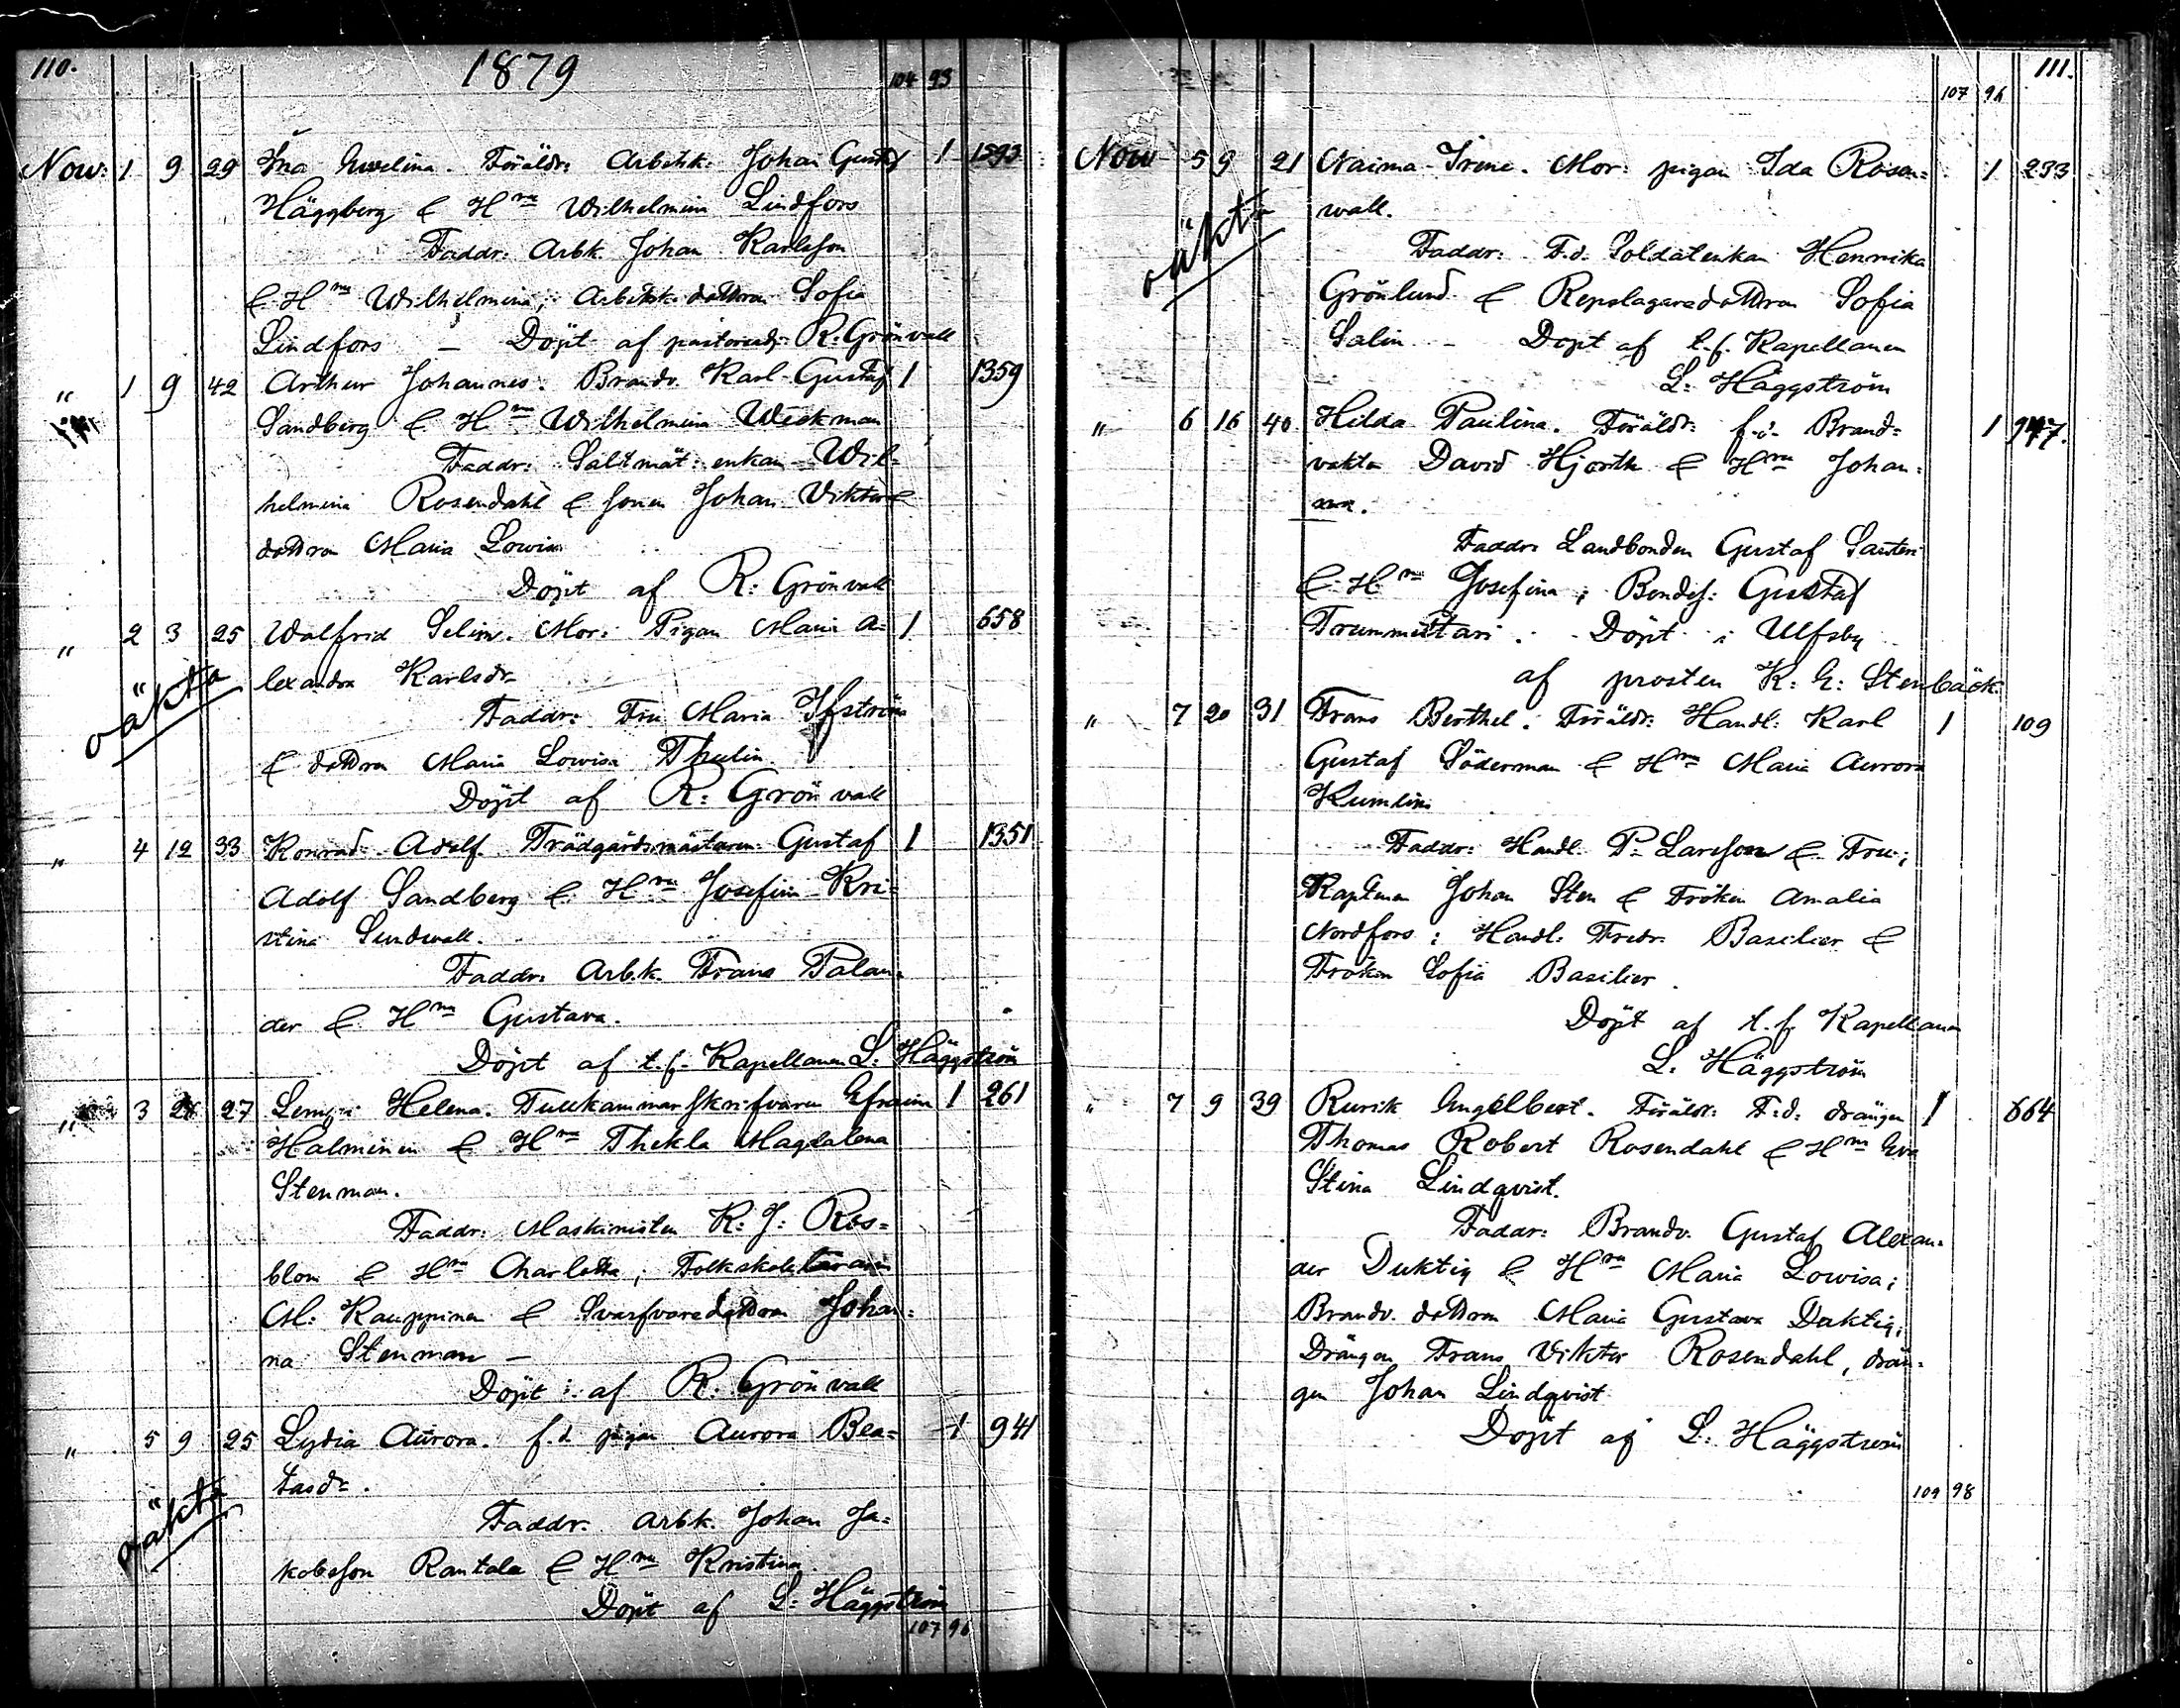 110.
1879
104 93
Nov: 1 9 29 Ina Ewelina. Föräldr: Arbetsk: Johan Gustaf 1 1593
Häggberg & H^ru Wilhelmina Lindfors
Faddr: Arbk. Johan Karlsson
& H^ru Wilhelmina; Arbetsk. dottren Sofia
Lindfors — Döpt af pastorsadj: R: Grönvall
" 1 9 42 Arthur Johannes. Brandv. Karl Gustaf 1 1359
Sandberg & H^ru Wilhelmina Weckman
Faddr: Saltmät: enkan Wil=
helmina Rosendahl & sonen Johan Viktor &
dottren Maria Lowisa
Döpt af R: Grönvall
" 2 3 25 Walfrid Selim. Mor: Pigan Maria A= 1 658
oäkta
lexandra Karlsdr
Faddr: Fru Maria Ifström
& dottren Maria Lowisa Thulin.
Döpt af R: Grönvall
" 4 12 33 Konrad Adolf. Trädgårdsmästaren Gustaf 1 1351
Adolf Sandberg & H^ru Josefina Kri=
stina Sundwall.
Faddr: Arb.k. Frans Palan=
der & H^ru Gustava.
Döpt af t.f. Kapellanen L: Häggström
" 3 27 Helena. Tullkammarskrifvaren Efraim 1 261
Halminen & H^ru Thekla Magdalena
Stenman.
Faddr: Maskinisten K: J: Ros=
blom & H^ru Charlotta; Folkskolelärarin
M: Kauppinen & Svarfvaredottren Johan=
na Stenman —
Döpt: af R. Grönvall
" 5 9 25 Lydia Aurora. f.d. pigan Aurora Bea= 1 941
oäkta
tasdr.
Faddr. Arbk. Johan Ja=
kobsson Rantala & H^ru Kristina
Döpt af L: Häggström
107 96
111.
107 96
Nov 5 9 21 Naima Irene. Mor: pigan Ida Rosen= 1 233
oäkta
wall.
Faddr: F.d. Soldatenkan Henrika
Grönlund & Repslagaredottren Sofia
Salin — Döpt af t.f. Kapellanen
L: Häggström
" 6 16 40 Hilda Paulina. Föräldr: f.d. Brand= 1 947.
vakten David Hjorth & H^ru Johan=
na.
Faddr: Landbonden Gustaf Santeri
& H^ru Josefina; Bondes: Gustaf
Trummetari. Döpt i Ulfsby
af prosten K: E: Stenbäck
" 7 20 31 Frans Berthel. Föräldr: Handl: Karl 1 109
Gustaf Söderman & H^ru Maria Aurora
Kumlin
Faddr: Handl. P: Larsson & Fru;
Kaptenen Johan Sten & Fröken Amalia
Nordfors; Handl: Fredr. Basilier &
Fröken Sofia Basilier.
Döpt af t.f. Kapellanen
L. Häggström
" 7 9 39 Rurik Engelbert. Föräldr: F.d. drängen 1 664
Thomas Robert Rosendahl & H^ru Eva
Stina Lindqvist.
Faddr: Brandv. Gustaf Alexan=
der Duktig & H^ru Maria Lowisa;
Brandv. dottren Maria Gustava Duktig;
Drängen Frans Viktor Rosendahl, drän=
gen Johan Lindqvist
Döpt af L: Häggström
109 98